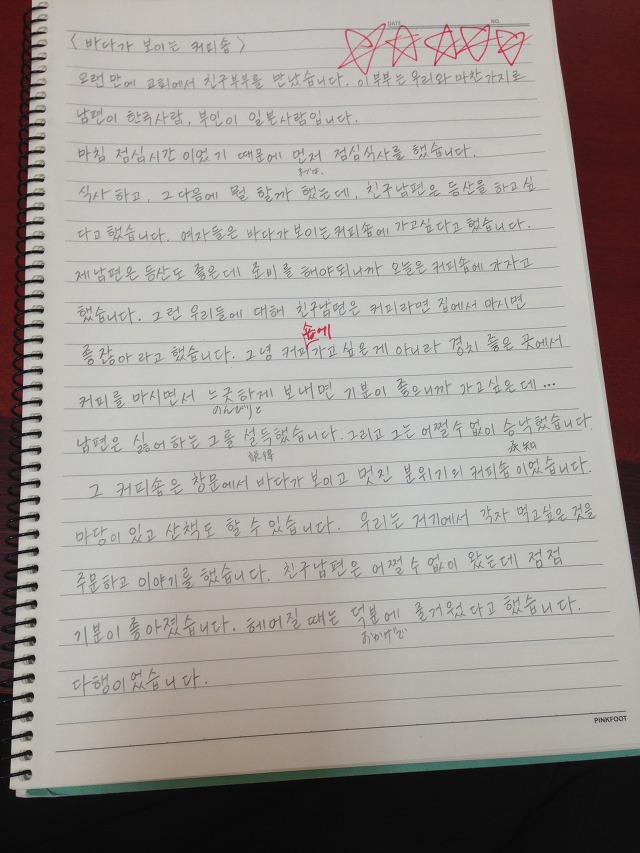 DATE NO.
< 바다가 보이는 커피숍 >
오런만에 교회에서 친구부부를 만났습니다. 이 부부는 우리와 마찬가지로
남편이 한국사람, 부인이 일본사람입니다.
마침 점심시간 이었기 때문에 먼저 점심식사를 했습니다.
まずは、
식사 하고, 그 다음에 뭘 할까 했는데, 친구남편은 등산을 하고 싶
다고 했습니다. 여자들은 바다가 보이는 커피숍에 가고싶다고 했습니다.
제 남편은 등산도 좋은데 준비를 해야되니까 오늘은 커피숍에 가자고
했습니다. 그런 우리들에 대해 친구남편은 커피라면 집에서 마시면
숍에
좋잖아 라고 했습니다. 그냥 커피가고 싶은게 아니라 경치 좋은 곳에서
커피를 마시면서 느긋하게 보내면 기분이 좋으니까 가고싶은데…
のんびりと
남편은 싫어하는 그를 설득했습니다. 그리고 그는 어쩔 수 없이 승낙했습니다.
説得 承知
그 커피숍은 창문에서 바다가 보이고 멋진 분위기의 커피숍 이었습니다.
마당이 있고 산책도 할 수 있습니다. 우리는 거기에서 각자 먹고싶은 것을
주문하고 이야기를 했습니다. 친구남편은 어쩔 수 없이 왔는데 점점
기분이 좋아졌습니다. 헤어질 때는 덕분에 즐거웠다고 했습니다.
おかげで
다행이었습니다.
PINKFOOT